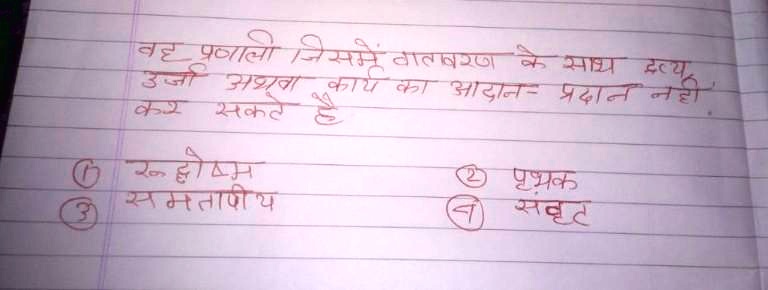 वह प्रणाली जिसमें वातावरण के साथ द्रव्य,
उर्जा अथवा कार्य का आदान- प्रदान नही
कर सकते है
① रूद्धोष्म ② पृथक
③ समतापीय ④ संवृट